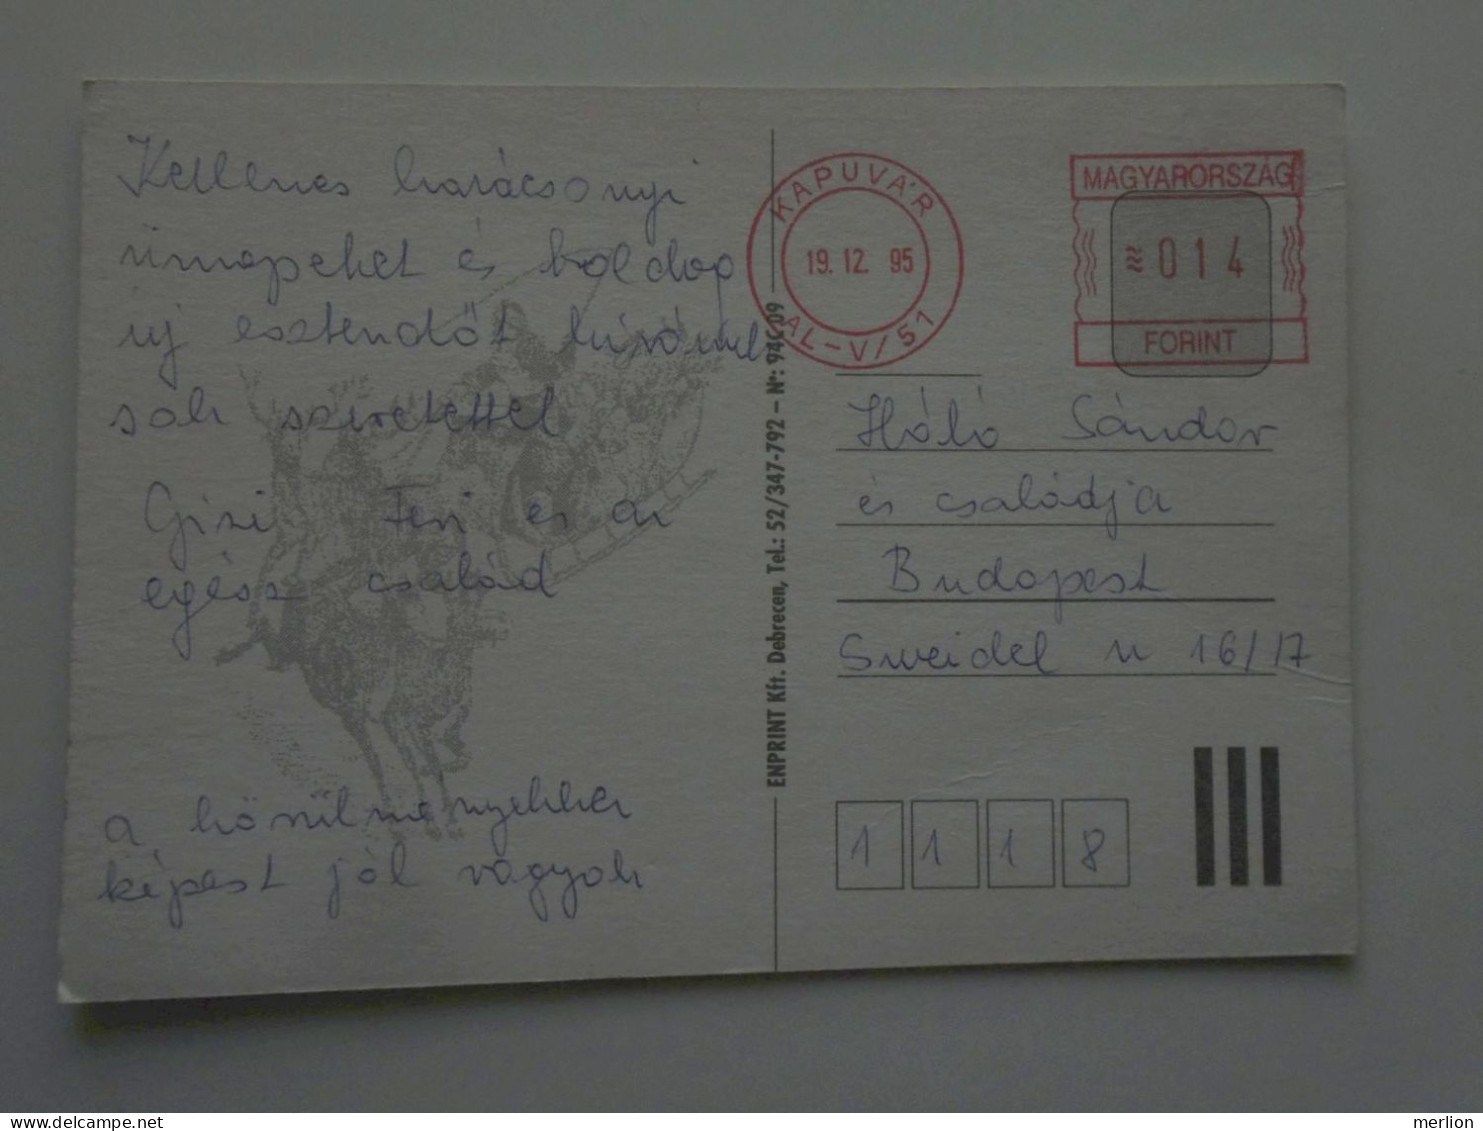 Kellemes karácsonyi
ünnepeket és boldog
új esztendőt kívánunk
sok szeretettel
Gizi Feri és az
egész család
a körülményekhez
képest jól vagyok
ENPRINT Kft. Debrecen, Tel.: 52/347-792 – Nº: 94C 09
KAPUVÁR
19. 12. 95
AL-V/51
MAGYARORSZÁG
014
FORINT
Háló Sándor
és családja
Budapest
Sweidel u 16/17
1 1 1 8
merlion
delcampe.net